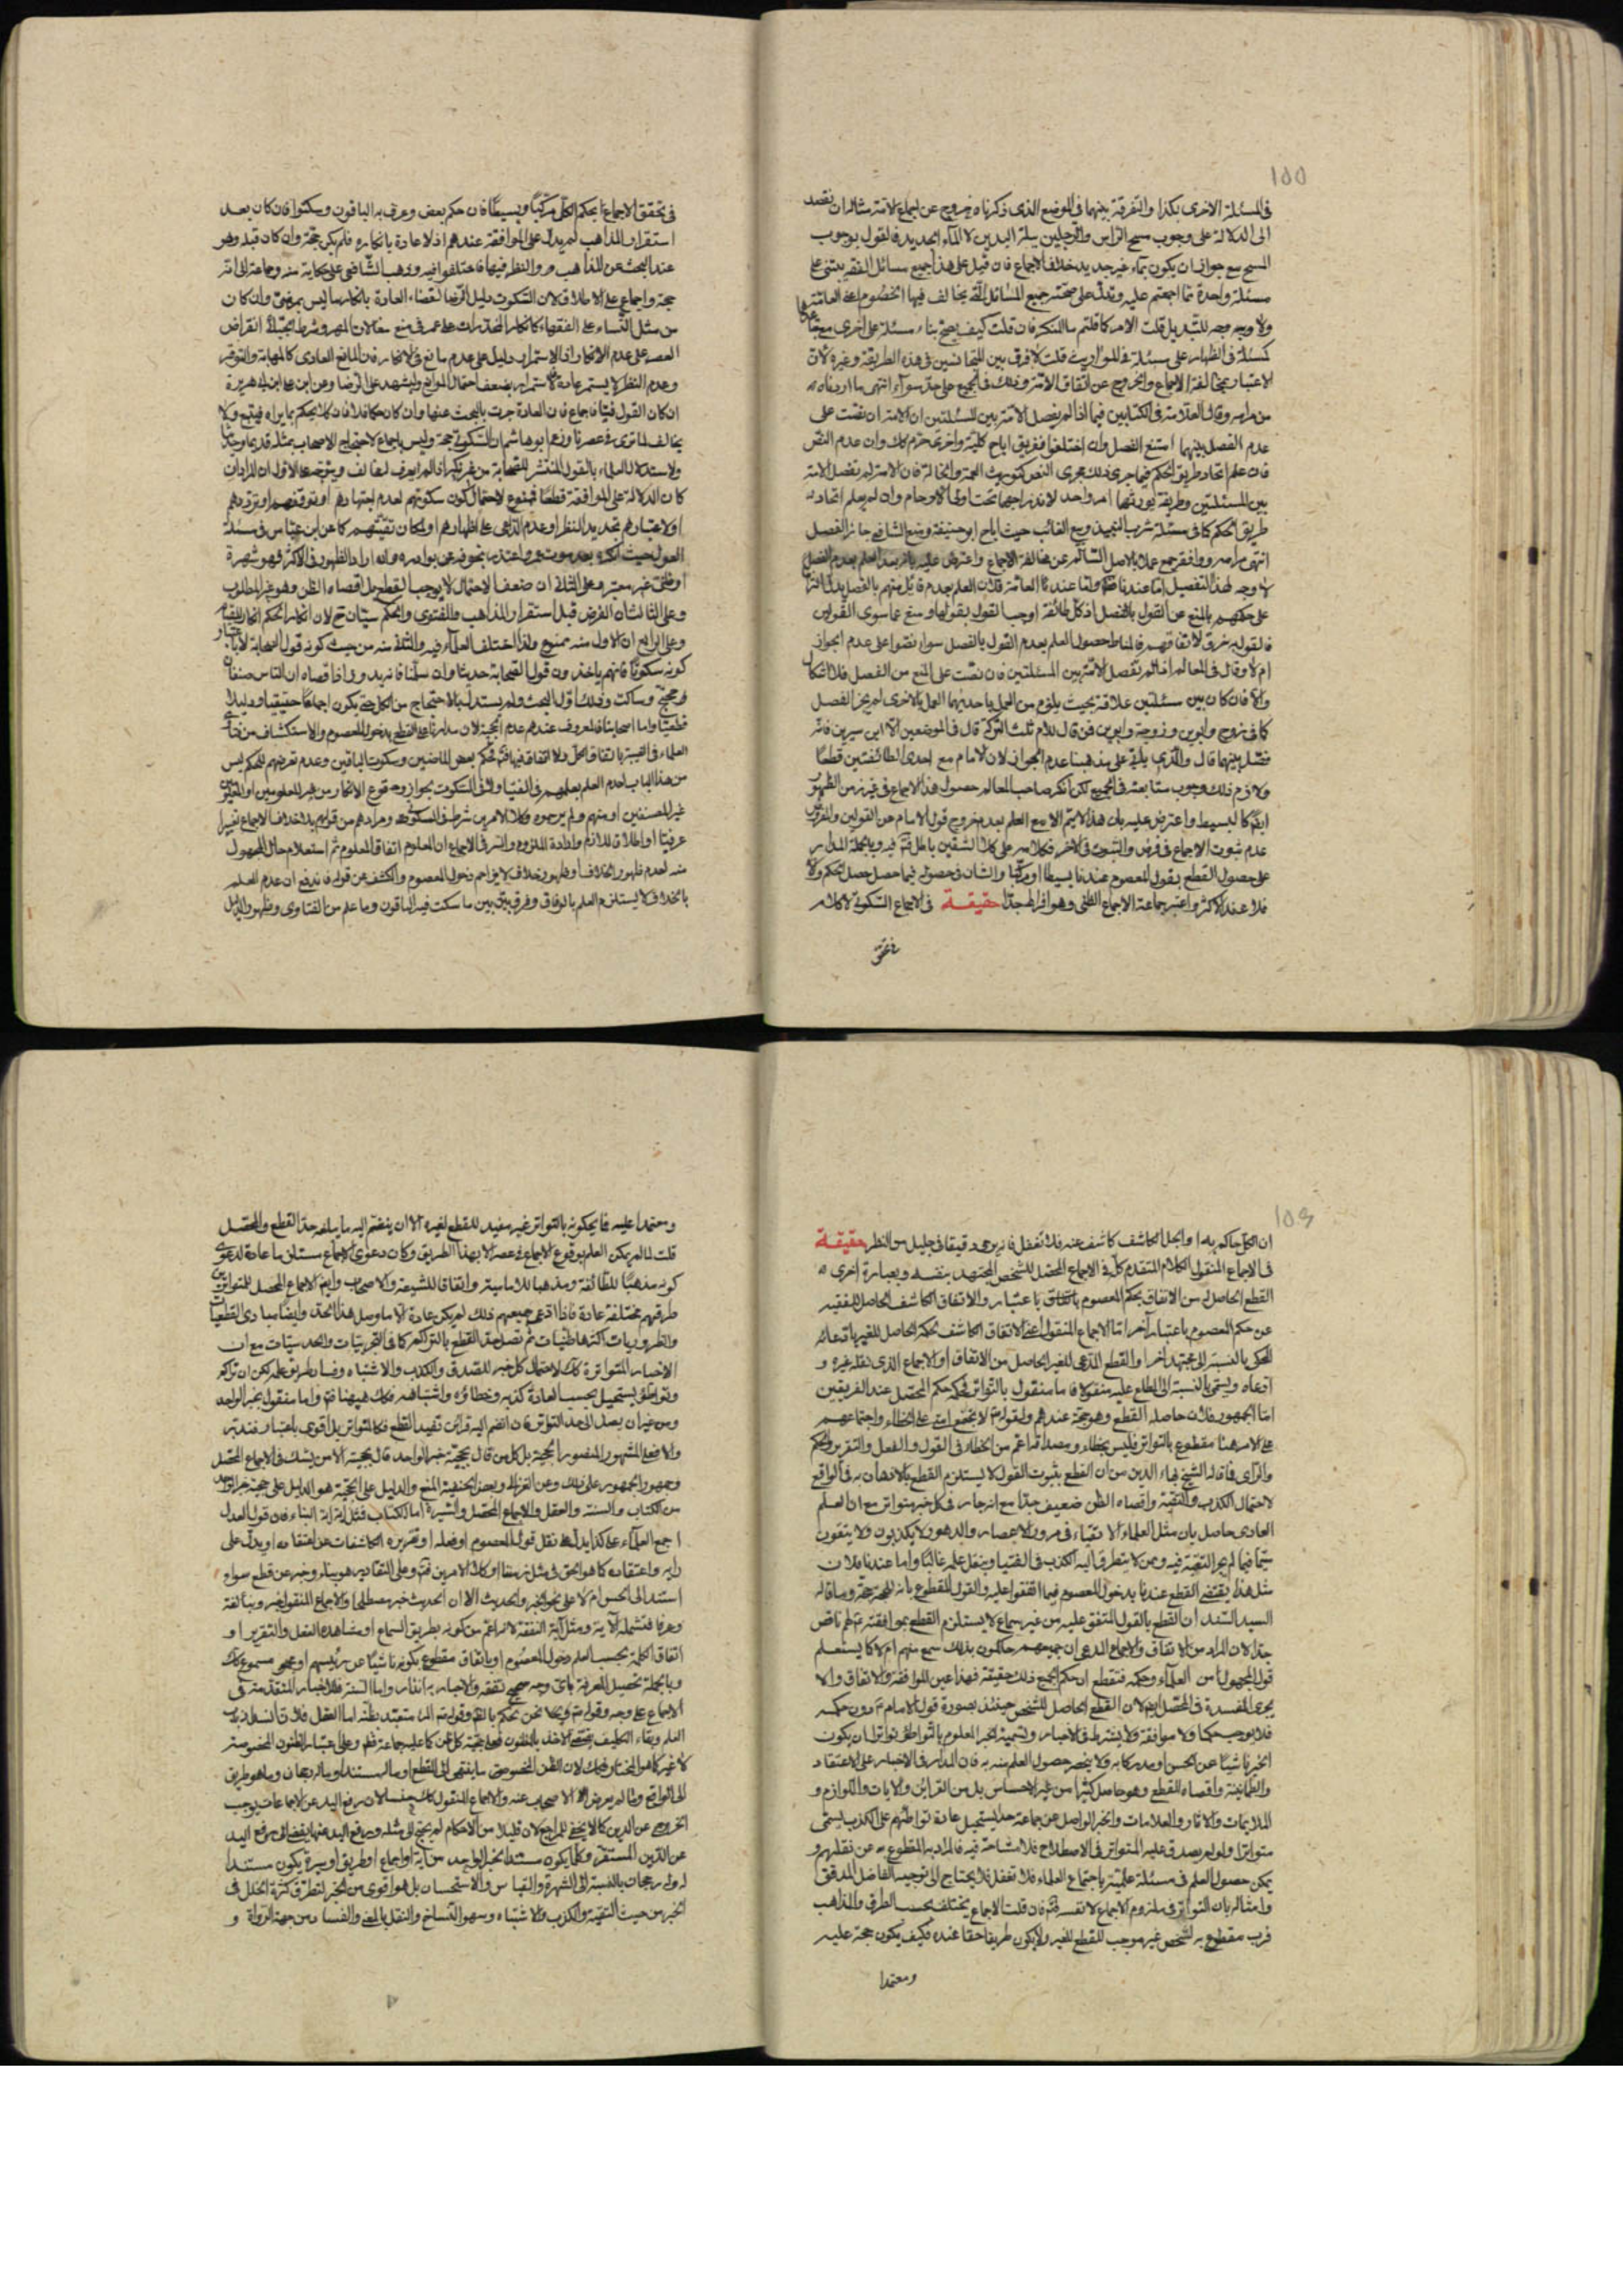 ١٥٥
فى المسئلة الاخرى بكذا والتفرقة بينهما فى الموضع الذى ذكرناه خروج عن اجماع الامة مثاله ان نقصد
الى الدلالة على وجوب مسح الراس والرجلين ببلة اليدين لا بالماء الجديد فالقول بوجوب
المسح مع جواز ان يكون بماء غير جديد خلاف الاجماع فان قيل على هذا جميع مسائل الفقه يبتنى على
مسئلة واحدة مما اجمعتم عليه وتدل على صحته جميع المسائل التى يخالف فيها الخصوم
ولا وجه للتبديل قلت الامر كما قلتم فان قلت كيف يصح بناء مسئلة على اخرى
كمسئلة فى الظهار على مسئلة فى المواريث قلت لا فرق بين المتجانسين فى هذه الطريقة وغيره لان
الاعتبار بمخالفة الاجماع والخروج عن اتفاق الامة وذلك فى الجميع على حد سواء انتهى ما اردناه
من مرامه وقال العلامة فى الكتابين فيما اذا لم يفصل الامة بين المسئلتين ان الامة ان نصت على
عدم الفصل بينهما امتنع الفصل وان اختلفوا ففريق اباح كلية واخرى حرم كك وان عدم النص
فان علم اتحاد طريق الحكم فيما جرى ذلك مجرى النص كتوريث العمة والخالة فان الامة لم تفصل
بين المسئلتين وطريقة توريثهما امر واحد لاندراجهما تحت اولى الارحام وان لم يعلم اتحاد
طريق الحكم كما فى مسئلة شرب النبيذ وبيع الغائب حيث اباح ابو حنيفة ومنع الشافعى جاز الفصل
انتهى مرامه ووافقه جمع عملا بالاصل السالم عن مخالفة الاجماع واعترض عليه بانه بعد العلم بعدم الفصل
لا وجه لهذا التفصيل اما عندنا واما عند العامة فلان العلم بعدم قائل منهم بالفصل
على حكمهم بالمنع عن القول بالفصل اذ كل طائفة اوجب القول بقولها ومنع عما سوى القولين
فالقول به خرق لاتفاقهم فالمناط حصول العلم بعدم القول بالفصل سواء نصوا على عدم الجواز
ام لا وقال فى المعالم اذا لم تفصل الامة بين المسئلتين فان نصت على المنع من الفصل فلا اشكال
والا فان كان بين مسئلتين علاقة بحيث يلزم من العمل باحديهما العمل بالاخرى لم يجز الفصل
كما فى زوج وابوين وزوجة وابوين فمن قال للام ثلث التركة قال فى الموضعين الا ابن سيرين فانه
فصل بينهما قال والذى ياتى على مذهبنا عدم الجواز لان الامام مع احدى الطائفتين قطعا
ولازم ذلك وجوب متابعته فى الجميع لكن انكر صاحب المعالم حصول هذا الاجماع فى غير زمن الظهور
ايضا كالبسيط واعترض عليه بان هذا لا يتم الا مع العلم بعدم خروج قول الامام عن القولين والفرض
عدم ثبوت الاجماع فى فرض والثبوت فى الاخر فكلامه على كلا الشقين باطل فيه وبالجملة المدار
على حصول القطع بقول المعصوم عندنا بسيطا او مركبا والشان فى حصوله فيما حصل حصل الحكم والا
فلا عند الاكثر واعتبر جماعة الاجماع الظنى وهو افراط جدا حقيقة فى الاجماع السكوتى لا كلام
فى تحقق
فى تحقق الاجماع بحكم الكل مركبا وبسيطا فان حكم بعض وعرف به الباقون وسكتوا فان كان بعد
استقرار المذاهب لم يدل على الموافقة عندهم اذ لا عادة بانكاره فلم يكن حجة وان كان قبله وهو
عند البحث عن المذاهب والنظر فيها فاختلفوا فيه وذهب الشافعى على حكاية عنه وجماعة الى انه
حجة واجماع على الاطلاق لان السكوت دليل الرضا لقضاء العادة بانكار ما ليس بمرضى وان كان
من مثل النساء على الفقهاء كانكار المخدرات على عمر فى منع مغالات المهر وشرط الجبائى انقراض
العصر على عدم الانكار اذ الاستمرار دليل على عدم مانع فى الانكار فان المانع العادى كالمهابة والتوقير
وعدم النظر لا يستمر عادة فالاستمرار يضعف احتمال الموانع ويشهد على الرضا وعن ابن ابى هريرة
ان كان القول فتيا فاجماع فان العادة جرت بالبحث عنها وان كان حكما فلا فان كلا يحكم بما يراه فيتبع ولا
يخالف كما ترى فى عصرنا وزعم ابو هاشم ان السكوتى حجة وليس باجماع لاحتجاج الاصحاب بمثله قديما وحديثا
ولاستدلال العلماء بالقول المنتشر للصحابة من غير نكير اذا لم يعرف له مخالف ويتوجه على الاول ان المراد ان
كان الدلالة على الموافقة قطعا فممنوع لاحتمال كون سكوتهم لعدم اجتهادهم او توقفهم او ترددهم
او لاعتبارهم تجديد النظر او عدم الداعى على اظهارهم او لمكان تقيتهم كما عن ابن عباس فى مسئلة
العول حيث انكره بعد موت عمر واعتذر بخوفه عن بوادره وان اراد الظهور فى الاكثر فهو شهرة
او ظن غير معتبر وعلى الثانى ان ضعف الاحتمال لا يوجب القطع بل اقصاه الظن وهو غير المطلوب
وعلى الثالث ان الفرض قبل استقرار المذاهب فالفتوى والحكم سيان
وعلى الرابع ان الاول منه ممنوع ولذا اختلف العلماء فيه والثانى منه من حيث كونه قول الصحابة لا باعتبار
كونه سكوتا فانهم ياخذون قول الصحابة حديثا وان سلمنا اقصاه ان الناس صنفان
محتج وساكت وذلك اول البحث ولم يستدل بالاحتجاج من الكل حتى يكون اجماعا حقيقيا ودليلا
قطعيا واما اصحابنا فالمعروف عندهم عدم الحجية لان مدارنا على القطع بدخول المعصوم والاستكشاف من
العلماء فى الغيبة باتفاق الكل ولا اتفاق فيها فى حكم بعض الماضين وسكوت الباقين وعدم تعرضهم للحكم ليس
من هذا الباب لعدم العلم بعلمهم فى الفتيا وفى السكوت بجواز وقوع الانكار من غير المعلومين او المعلومين
غير المصنفين او منهم ولم يرجوه وكلا الامرين شرط فى السكوتى ومرادهم من قولهم بلا خلاف الاجماع تعبيرا
عرفيا او اطلاقا للازم وارادة الملزوم والسر فى الاجماع ان المعلوم اتفاق المعلوم ثم استعلام حال المجهول
منه لعدم ظهور الخلاف وظهور خلاف لا يزاحم دخول المعصوم والكشف عن قوله فاندفع ان عدم العلم
بالخلاف لا يستلزم العلم بالوفاق وفرق بين بين ما سكت فيه الباقون وما علم من الفتاوى وظهور الدليل
١٥٦
ان الكل حاكم به او الجل الكاشف كاشف عنه فلا تغفل فانه يرى دقيقا فى جليل من النظر حقيقة
فى الاجماع المنقول الكلام المتقدم كله فى الاجماع المحصل للشخص المجتهد بنفسه وبعبارة اخرى
القطع الحاصل له من الاتفاق بحكم المعصوم باعتبار والاتفاق الكاشف الحاصل للفقيه
عن حكم المعصوم باعتبار آخر اما الاجماع المنقول اعنى الاتفاق الكاشف بحكمه الحاصل للغير بادعائه
المحكى بالنسبة الى مجتهد آخر او القطع المدعى للغير الحاصل من الاتفاق او الاجماع الذى نقله غيره و
ادعاه ويسمى بالنسبة الى المطلع عليه منقولا فاما منقول بالتواتر فحكمه حكم المحصل عند الفريقين
اما الجمهور فلان حاصله القطع وهو حجة عندهم ولقوله لا تجتمع امتى على الخطاء واجتماعهم
على الامر هنا مقطوع بالتواتر فليس بخطاء ومصداقه اعم من الخطاء فى القول والفعل والتقرير والحكم
والراى فما قاله الشيخ بهاء الدين من ان القطع بثبوت القول لا يستلزم القطع بالاذهان به فى الواقع
لاحتمال الكذب والتقية واقصاه الظن ضعيف جدا مع انه جار فى كل خبر متواتر مع ان العلم
العادى حاصل بان مثل العلماء الاتقياء فى مرور الاعصار والدهور لا يكذبون ولا يتقون
سيما فيما لم يجر التقية فيه وممن لا يتطرق اليه الكذب فى الفتيا وينقل علمه غالبا واما عندنا فلان
مثل هذا يقتضى القطع عندنا بدخول المعصوم فيما اتفقوا عليه والقول المقطوع بانه للحجة حجة وما قاله
السيد السند ان القطع بالقول المتفق عليه من غير سماع لا يستلزم القطع بموافقته ناقص
جدا لان المراد من الاتفاق والاجماع المدعى ان جميعهم حاكمون بذلك سمع منهم ام لا كما يستعلم
قول المجهول من العلماء وحكمه فنقطع ان حكم الجميع ذلك حقيقة فهذا عين الموافقة والاتفاق والا
يجرى المفسدة فى المحصل ايضا لان القطع الحاصل للشخص حينئذ بصورة قول الامام دون حكمه
فلا يوجب حكما ولا موافقة ولا يشترط فى الاخبار وتسمية الخبر المعلوم بالتواطؤ تواترا ان يكون
الخبر ناشيا عن الحس او مدركا به ولا ينحصر حصول العلم منه به فان المدار فى الاخبار على الاعتقاد
والطمانينة واقصاه القطع وهو حاصل كثيرا من غير الاحساس بل من القراين والايات واللوازم و
الملايمات والاثار والعلامات والخبر الواصل عن جماعة حدا يستحيل عادة تواطئهم على الكذب يسمى
متواترا ولو لم يصدق عليه المتواتر فى الاصطلاح فلا مشاحة فيه فالمراد به المقطوع به عن نقلهم و
يمكن حصول العلم فى مسئلة علمية باجتماع العلماء فلا تغفل فلا يحتاج الى توجيه الفاضل المدقق
وامثاله بان التواتر فى ملزوم الاجماع لا نفسه فان قلت الاجماع يختلف بحسب الطرق والمذاهب
فرب مقطوع به لشخص غير موجب للقطع للغير ولا يكون طريقا حقا عنده فكيف يكون حجة عليه
ومعتمدا
ومعتمدا عليه فما يحكونه بالتواتر غير مفيد للقطع لغيره الا ان ينضم اليه ما يبلغه حد القطع والمحصل
قلت لما لم يكن العلم بوقوع الاجماع فى عصر الا بهذا الطريق وكان دعوى الاجماع مستلزما عادة لدعوى
كونه مذهبا للطائفة ومذهبا للامامية واتفاقا للشيعة والاصحاب وايضا الاجماع المحصل للمتواترين
طرقهم مختلفة عادة فاذا ادعى جميعهم ذلك لم يكن عادة الا ما وصل هذا الحد وايضا مبادى القطعيات
والضروريات اكثرها ظنيات ثم تصل حد القطع بالتراكم كما فى التجربيات والحدسيات مع ان
الاخبار المتواترة كك لاحتمال كل خبر للصدق والكذب والاشتباه وفساد طريق علمه لكن ان تراكم
وتواطؤ يستحيل بحسب العادة كذبه وخطاؤه واشتباهه فكك هيهنا واما منقول بخبر الواحد
ومن غير ان يصل الى حد التواتر فان انضم اليه قراين تفيد القطع فكالمتواتر بل اقوى باعتبار فتدبر
والا فعلى المشهور المنصور الحجية بل كل من قال بحجية خبر الواحد قال بحجيته الا من يشك فى الاجماع المحصل
وجمهور الجمهور على ذلك وعن الغزالى وبعض الحنفية المنع والدليل على الحجية هو الدليل على حجية خبر الواحد
من الكتاب والسنة والعقل والاجماع المحصل والسيرة اما الكتاب فمثل اية النباء فان قول العدل
اجمع العلماء على كذا يدل على نقل قول المعصوم او فعله او تقريره الكاشفات عن اعتقاده او يدل على
رايه واعتقاده كما هو الحق فى مثل زمننا او كلا الامرين وعلى التقادير هو نباء وخبر عن قطع سواء
استند الى الحس ام لا على نحو الخبر والحديث الا ان الحديث خبر مصطلحا والاجماع المنقول خبر ونباء لغة
وعرفا فتشمله الاية ومثل آية النفر لانه اعم من كونه بطريق السماع او مشاهدة الفعل والتقرير او
اتفاق الكلمة بحسب العلم بدخول المعصوم او باتفاق مقطوع بكونه ناشيا عن رئيسهم او نحو مسموع كك
وبالجملة تحصيل المعرفة باى وجه صحيح تفقه والاخبار به انذار واما السنة فللاخبار المتقدمة فى
الاجماع على وجه وقوله نحن نحكم بالظاهر وقوله المرء متعبد بظنه اما العقل فلان انسداد باب
العلم وبقاء التكليف يقتضى الاخذ بالظنون فعلى حجية كل ظن كما عليه جماعة فظاهر وعلى اعتبار الظنون المخصوصة
لا غير كما هو المختار فكك لان الظن المخصوص ما ينتهى الى القطع او ما له مستند او ما له رجحان وما هو طريق
الى الواقع وما لم يعرض الاصحاب عنه والاجماع المنقول كك رفع اليد عن الاجماعات يوجب
الخروج عن الدين كما لا يخفى للمراجع لان قليلا من الاحكام لم يحتج الى مثله ورفع اليد عنها يفضى الى رفع اليد
عن الدين المستقر وكلما يكون مستندا لخبر الواحد من آية او اجماع او طريق او سيرة يكون مستندا
له وله رجحان بالنسبة الى الشهرة والقياس والاستحسان بل هو اقوى من الخبر لتطرق كثرة الخلل فى
الخبر من حيث التقية والكذب والاشتباه وسهو النساخ والنقل بالمعنى والفساد من جهة الرواة و